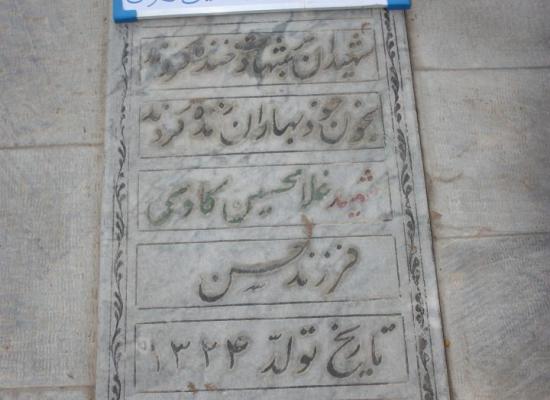 شهیدان بر شهادت خنده کردند
بخون خود بهاران زنده کردند
شهید غلامحسین کاوسی
فرزند حسن
تاریخ تولد ۱۳۲۴